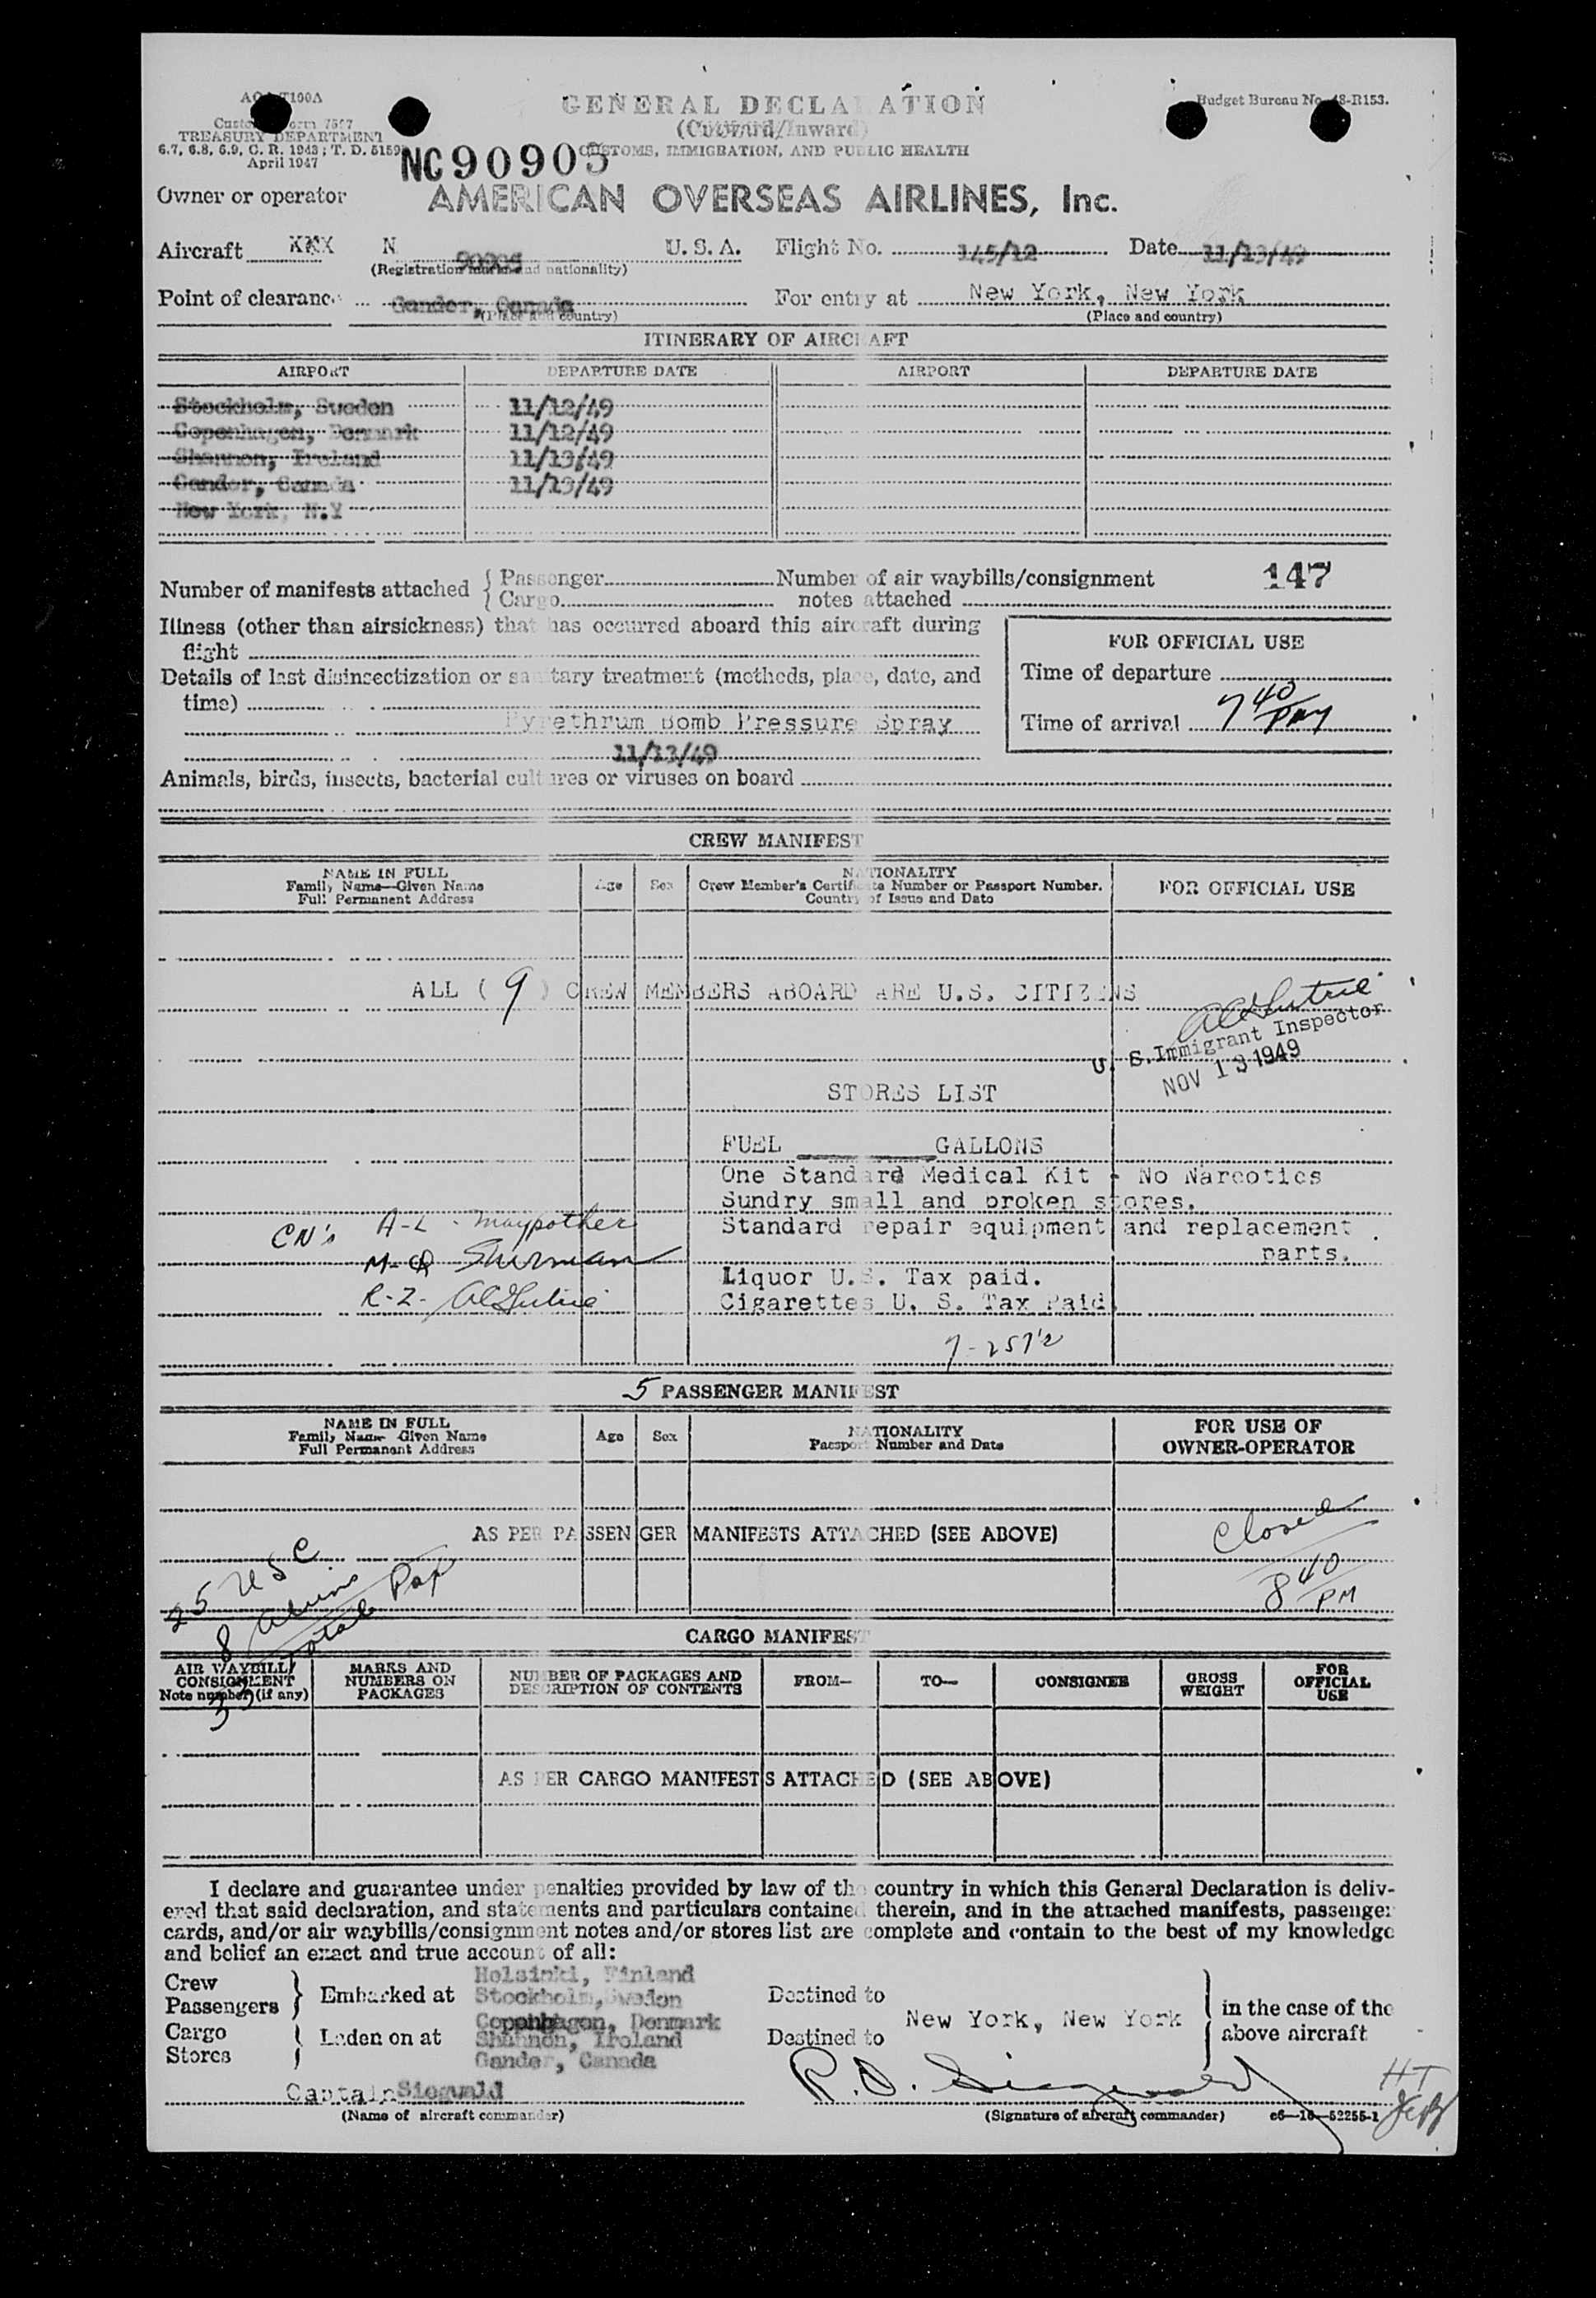 GENERAL DECLARATION
Budget Bureau No. 48-R153.
(Outward/Inward)
TREASURY DEPARTMENT
6.7, 6.8, 6.9, C. R. 1943; T. D. 5159
CUSTOMS, IMMIGRATION, AND PUBLIC HEALTH
April 1947
NC90905
Owner or operator AMERICAN OVERSEAS AIRLINES, Inc.
Aircraft XXX N 90905 U. S. A. Flight No. 145/12 Date 11/13/49
(Registration marks and nationality)
Point of clearance Gander, Canada For entry at New York, New York
(Place and country) (Place and country)
ITINERARY OF AIRCRAFT
AIRPORT DEPARTURE DATE AIRPORT DEPARTURE DATE
Stockholm, Sweden 11/12/49
Copenhagen, Denmark 11/12/49
Shannon, Ireland 11/13/49
Gander, Canada 11/13/49
New York, N.Y
Number of manifests attached { Passenger Number of air waybills/consignment 147
Cargo notes attached
Illness (other than airsickness) that has occurred aboard this aircraft during
flight
FOR OFFICIAL USE
Details of last disinsectization or sanitary treatment (methods, place, date, and
time)
Time of departure
Pyrethrum Bomb Pressure Spray
Time of arrival 7 40 PM
11/13/49
Animals, birds, insects, bacterial cultures or viruses on board
CREW MANIFEST
NAME IN FULL
Family Name—Given Name
Full Permanent Address
Age Sex
NATIONALITY
Crew Member's Certificate Number or Passport Number.
Country of Issue and Date
FOR OFFICIAL USE
ALL ( 9 ) CREW MEMBERS ABOARD ARE U.S. CITIZENS
U. S. Immigrant Inspector
NOV 13 1949
STORES LIST
FUEL GALLONS
One Standard Medical Kit - No Narcotics
Sundry small and broken stores.
Standard repair equipment and replacement
parts.
Liquor U.S. Tax paid.
Cigarettes U. S. Tax Paid
CN's A-L - Maypother
M-Q Shurman
R-Z-
5 PASSENGER MANIFEST
NAME IN FULL
Family Name Given Name
Full Permanent Address
Age Sex
NATIONALITY
Passport Number and Date
FOR USE OF
OWNER-OPERATOR
AS PER PASSENGER MANIFESTS ATTACHED (SEE ABOVE)
Closed
8 40 PM
25 USC
8 Aliens
33 Total Pax
CARGO MANIFEST
AIR WAYBILL/
CONSIGNMENT
Note number (if any)
MARKS AND
NUMBERS ON
PACKAGES
NUMBER OF PACKAGES AND
DESCRIPTION OF CONTENTS
FROM— TO— CONSIGNEE
GROSS
WEIGHT
FOR
OFFICIAL
USE
AS PER CARGO MANIFESTS ATTACHED (SEE ABOVE)
I declare and guarantee under penalties provided by law of the country in which this General Declaration is deliv-
ered that said declaration, and statements and particulars contained therein, and in the attached manifests, passenger
cards, and/or air waybills/consignment notes and/or stores list are complete and contain to the best of my knowledge
and belief an exact and true account of all:
Crew
Passengers
Embarked at
Cargo
Stores
Laden on at
Helsinki, Finland
Stockholm, Sweden
Copenhagen, Denmark
Shannon, Ireland
Gander, Canada
Destined to
Destined to
New York, New York
in the case of the
above aircraft
Captain Siegwald
(Name of aircraft commander)
R. O. Siegwald
(Signature of aircraft commander) c6—16—52255-1
HT